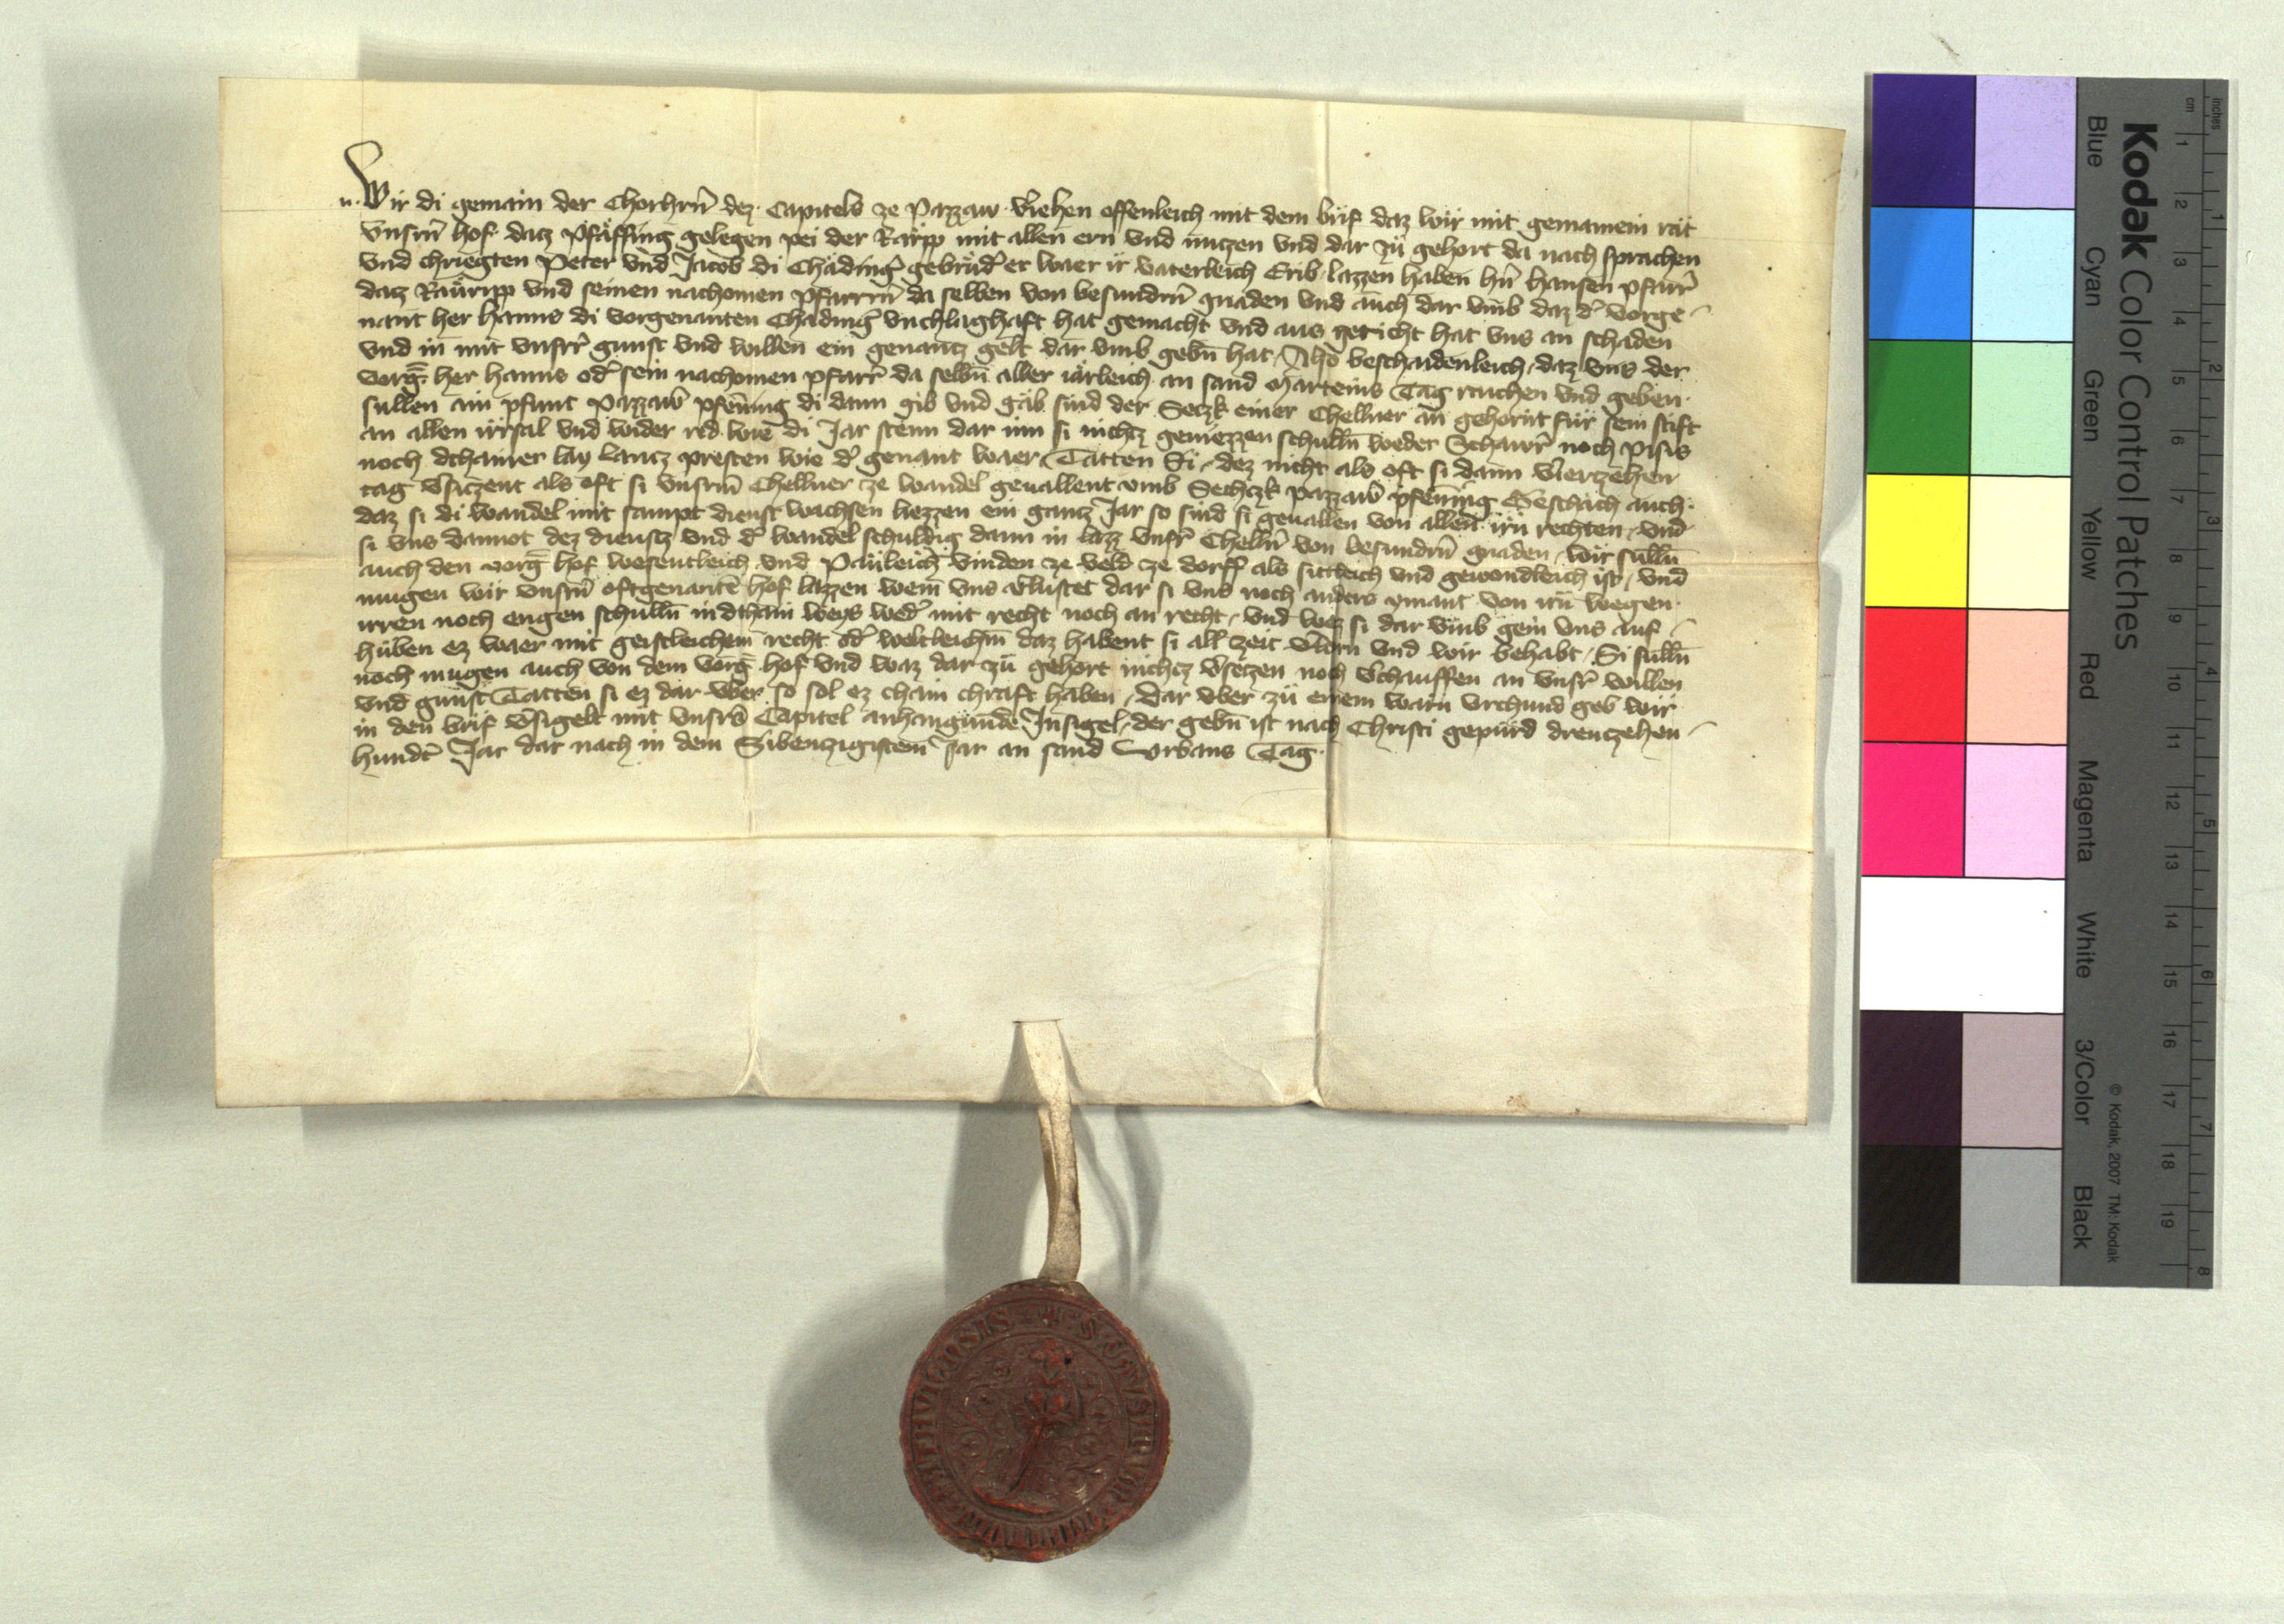 n. Wir di gemain der Chorhrn̄ dez Capitels ze Pazzaw v̄iehen offenleich mit dem brif daz wir mit gemainem rät
vnsern̄ hof datz Pfäffing gelegen pei der Rärpp mit allen ern vnd nutzen vnd dar zů gehort da nach sprachen
vnd chriegten Peter vnd Jacob di Chädinḡ gebrüd̄ er waer ir vaterleich Erib lazzen haben hn̄ hansen pfarr̄
datz Raürpp vnd seinen nachomen pfarrn̄ da selben von besundern̄ gnaden vnd auch dar vmb daz d̄ vorge
nant her hanns di vorgenanten Chädinḡ vnchlaghaft hat gemacht vnd aus gericht hat vns an schaden
vnd in mit vnserr̄ gunst vnd willen ein genantz gelt dar vmb gebn̄ hat Also beschaidenleich daz vns der
vorḡ her hanns od̄ sein nachomen pfarr̄ da selbn̄ aller iärleich an sand Marteins Tag raichen vnd geben
sullen ain pfunt Pazzaw̄ pfenning di dann gib vnd gäb sind der Seczk einer Chellner an gehornt für sein stift
an allen irrsal vnd wider red wie di Jar stenn dar inn si nichtz geniezzen schulln̄ weder Schawr̄ noch Pisis
noch dchainer lay lantz presten wie d̄ genant waer Tätten Si dez nicht als oft si dann viertzehen
tag v̄siczent als oft si vnserm̄ Chellner ze wandel geuallent vmb Sechczk pazzaw̄ pfenning Geschäch auch
daz si di wandel mit sampt dienst wachsen liezzen ein gantz Jar so sind si geuallen von allen irn̄ rechten vnd
si vns dannot dez dienstz vnd d̄ wandel schuldig dann in lazz vnser̄ Chelln̄ von besundern̄ gnaden wir sulln̄
auch den vorḡ hof wesentleich vnd Päuleich vinden ze veld ze dorff als sittleich vnd gewondleich ist vnd
mugen wir vnsern̄ oftgenantē hof lazzen wem̄ vns v̄lustet dar si vns noch anders ymant von irn̄ wegen
irren noch engen schulln̄ in dchain weys wed̄ mit recht noch an recht vnd wez si dar vmb gein vns auf
hüben ez waer mit geistleichem recht od̄ weltleichm̄ daz habent si all zeit v̄lorn vnd wir behabt Si sulln̄
noch mugen auch von dem vorḡ hof vnd waz dar zů gehort nichtz v̄seczen noch v̄chauffen an vnser̄ willen
vnd gunst Tätten si ez dar vber so sol ez chain chraft haben Dar vber zů einem warn vrchund geb wir
in den brif v̄sigelt mit vnsers̄ Capitel anhangundē Insigel der gebn̄ ist nach Christi gepürd dreutzehen
hundt̄ Jar dar nach in dem Sibenzigistem Jar an sand Vrbans Tag
Kodak Color Control Patches
Blue Cyan Green Yellow Red Magenta White 3/Color Black
© Kodak, 2007 TM: Kodak
inches 1 2 3 4 5 6 7 8
cm 1 2 3 4 5 6 7 8 9 10 11 12 13 14 15 16 17 18 19